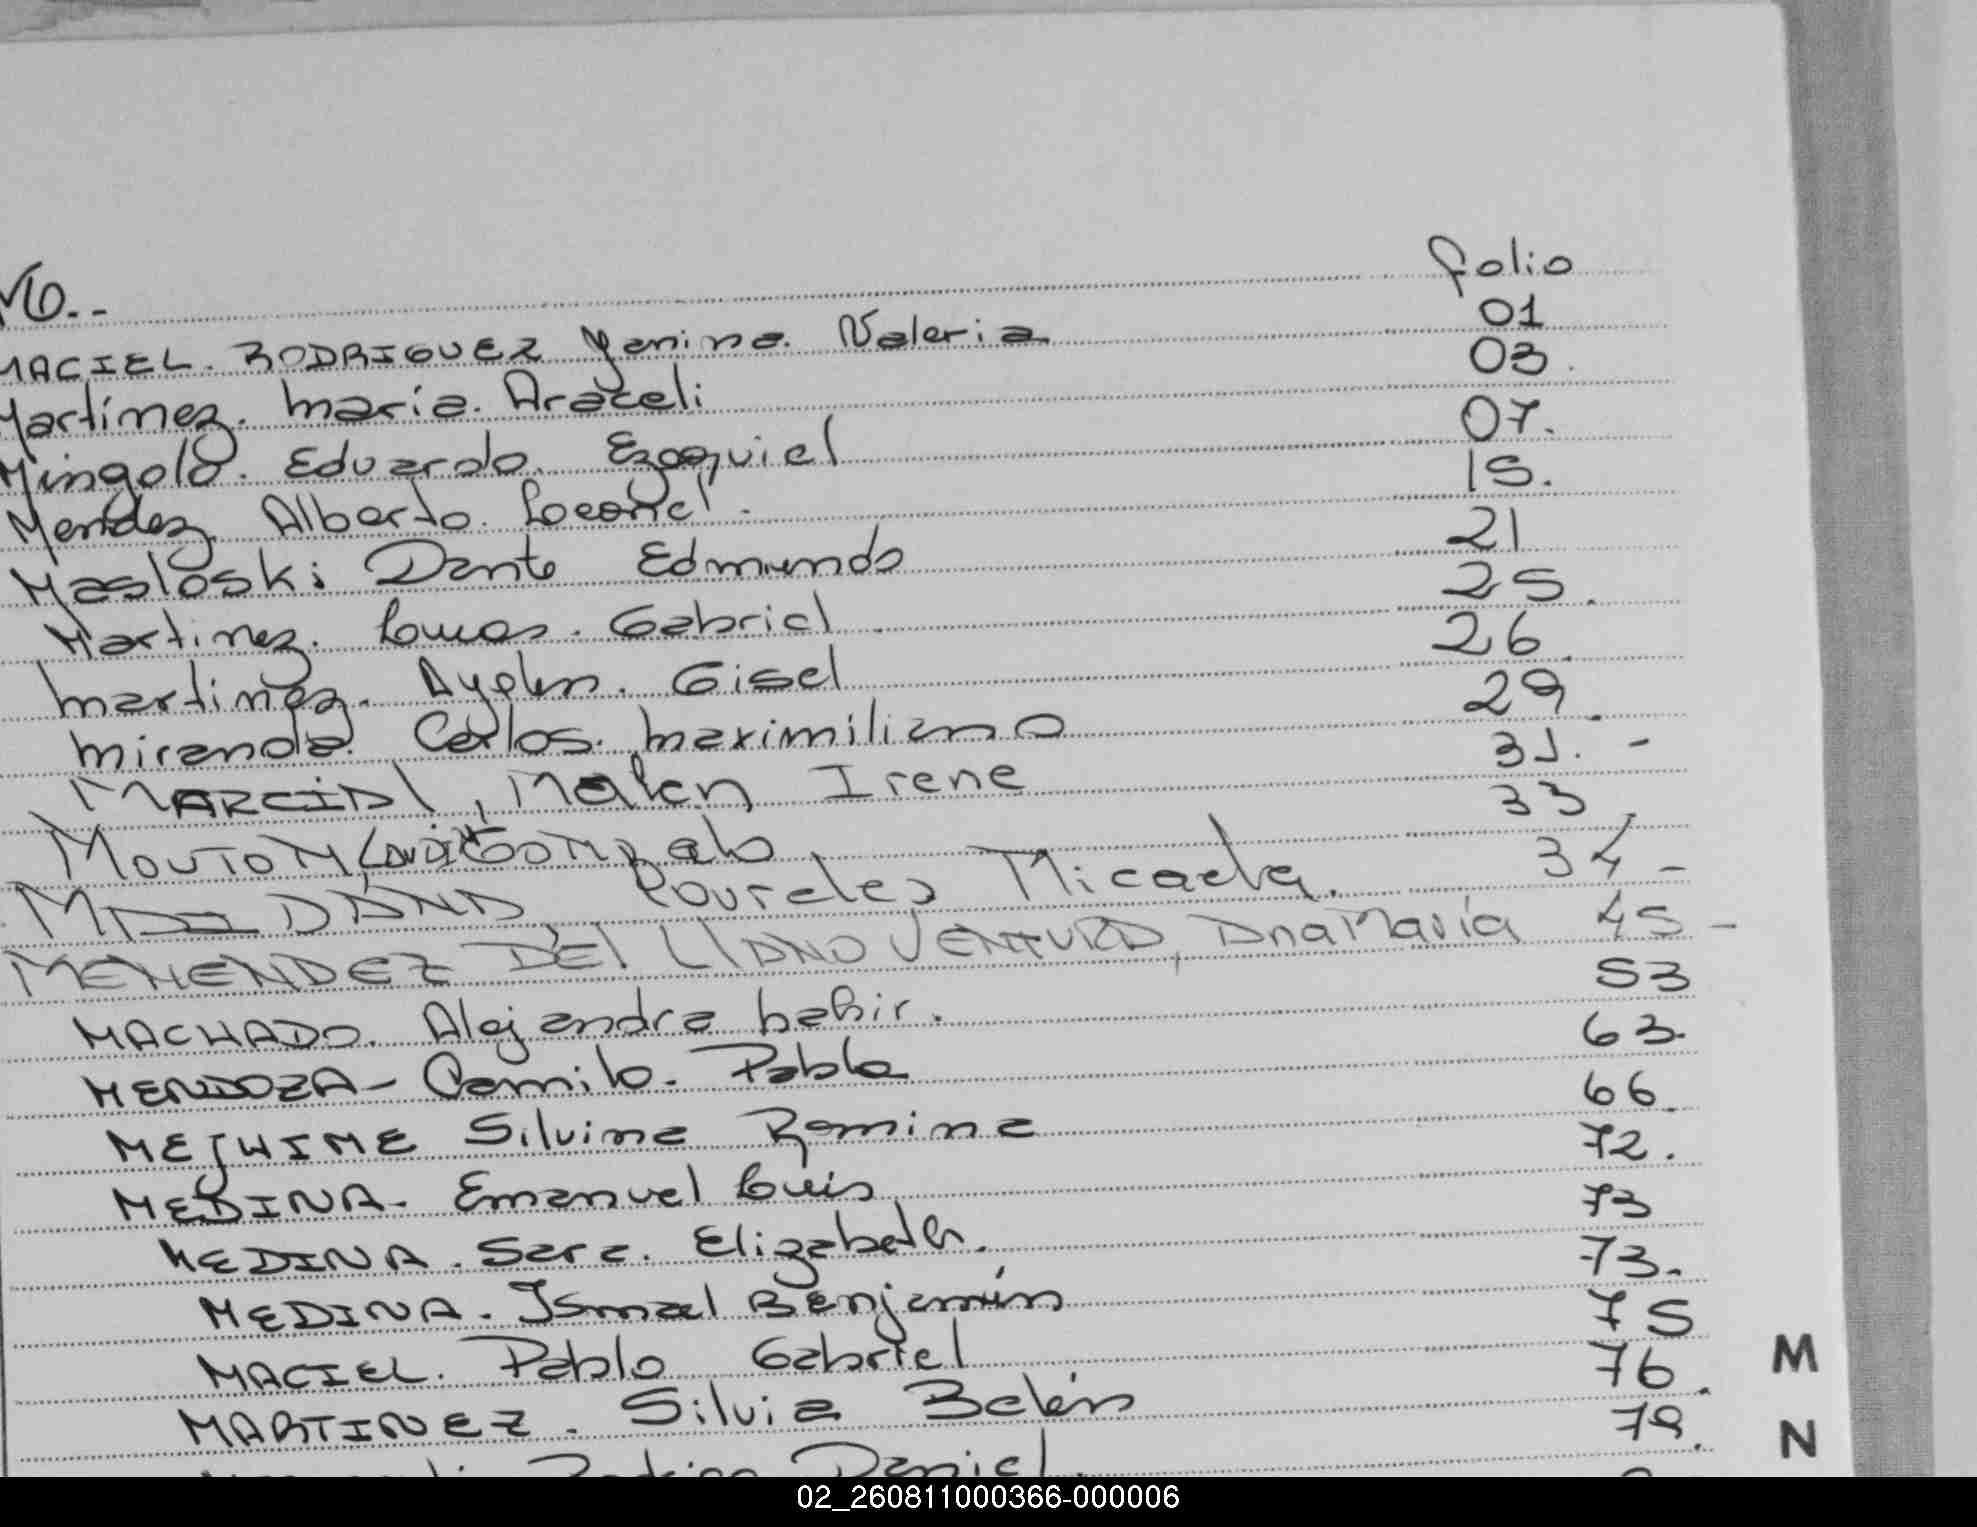 folio
MACIEL. RODRIGUEZ Yanina. Valeria 01
Martínez. María. Araceli 03.
Mingolo. Eduardo. Ezequiel 07.
Mendez Alberto. Leonel. 15.
Masloski Dante Edmundo 21
Martinez. Lucas. Gabriel 25.
Martinez. Ayelen. Gisel 26.
Miranda. Carlos. Maximiliano 29.
MARCIAl, Malen Irene 31. -
MOUTON, Gonzalo 33
Lourdes Micaela. 34 -
MENENDEZ DEl LlANO VENTURA, Ana María 45 -
MACHADO. Alejandra 53
MENDOZA - Camilo. Pablo 63.
Silvina Romina 66.
MEDINA. Emanuel Luis 72.
MEDINA. Sara. Elizabeth. 73
MEDINA. Ismael Benjamín 73.
MACIEL. Pablo Gabriel 75
MARTINEZ. Silvia Belén 76.
Daniel. 79.
M
N
02_260811000366-000006